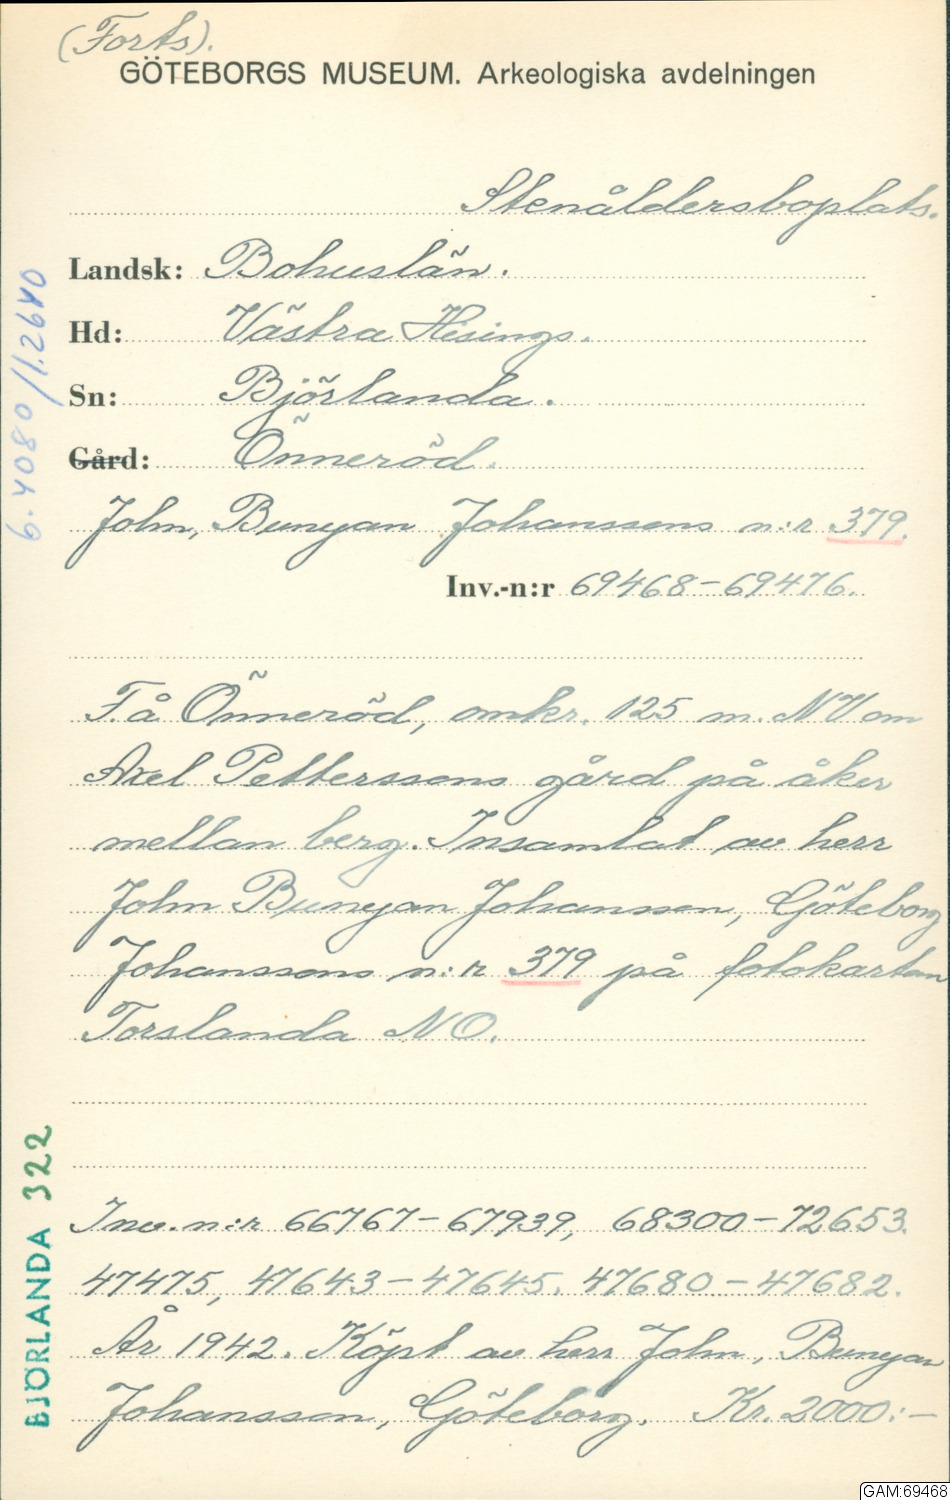 (Forts).
GÖTEBORGS MUSEUM. Arkeologiska avdelningen
Stenåldersboplats.
Landsk: Bohuslän.
Hd: Västra Hisings.
Sn: Björlanda.
Gård: Önneröd.
John, Bunyan Johanssons n:r 379.
Inv.-n:r 69468-69476.
F. å Önneröd, omkr. 125 m. NV om
Axel Petterssons gård på åker
mellan berg. Insamlat av herr
John Bunyan Johansson, Göteborg
Johanssons n:r 379 på fotokartan
Torslanda NO.
Inv. n:r 66767-67939, 68300-72653.
47475, 47643-47645. 47680-47682.
År 1942. Köpt av herr John, Bunyan
Johansson, Göteborg. Kr. 2000:-
6.4080/1.2640
BJÖRLANDA 322
GAM:69468